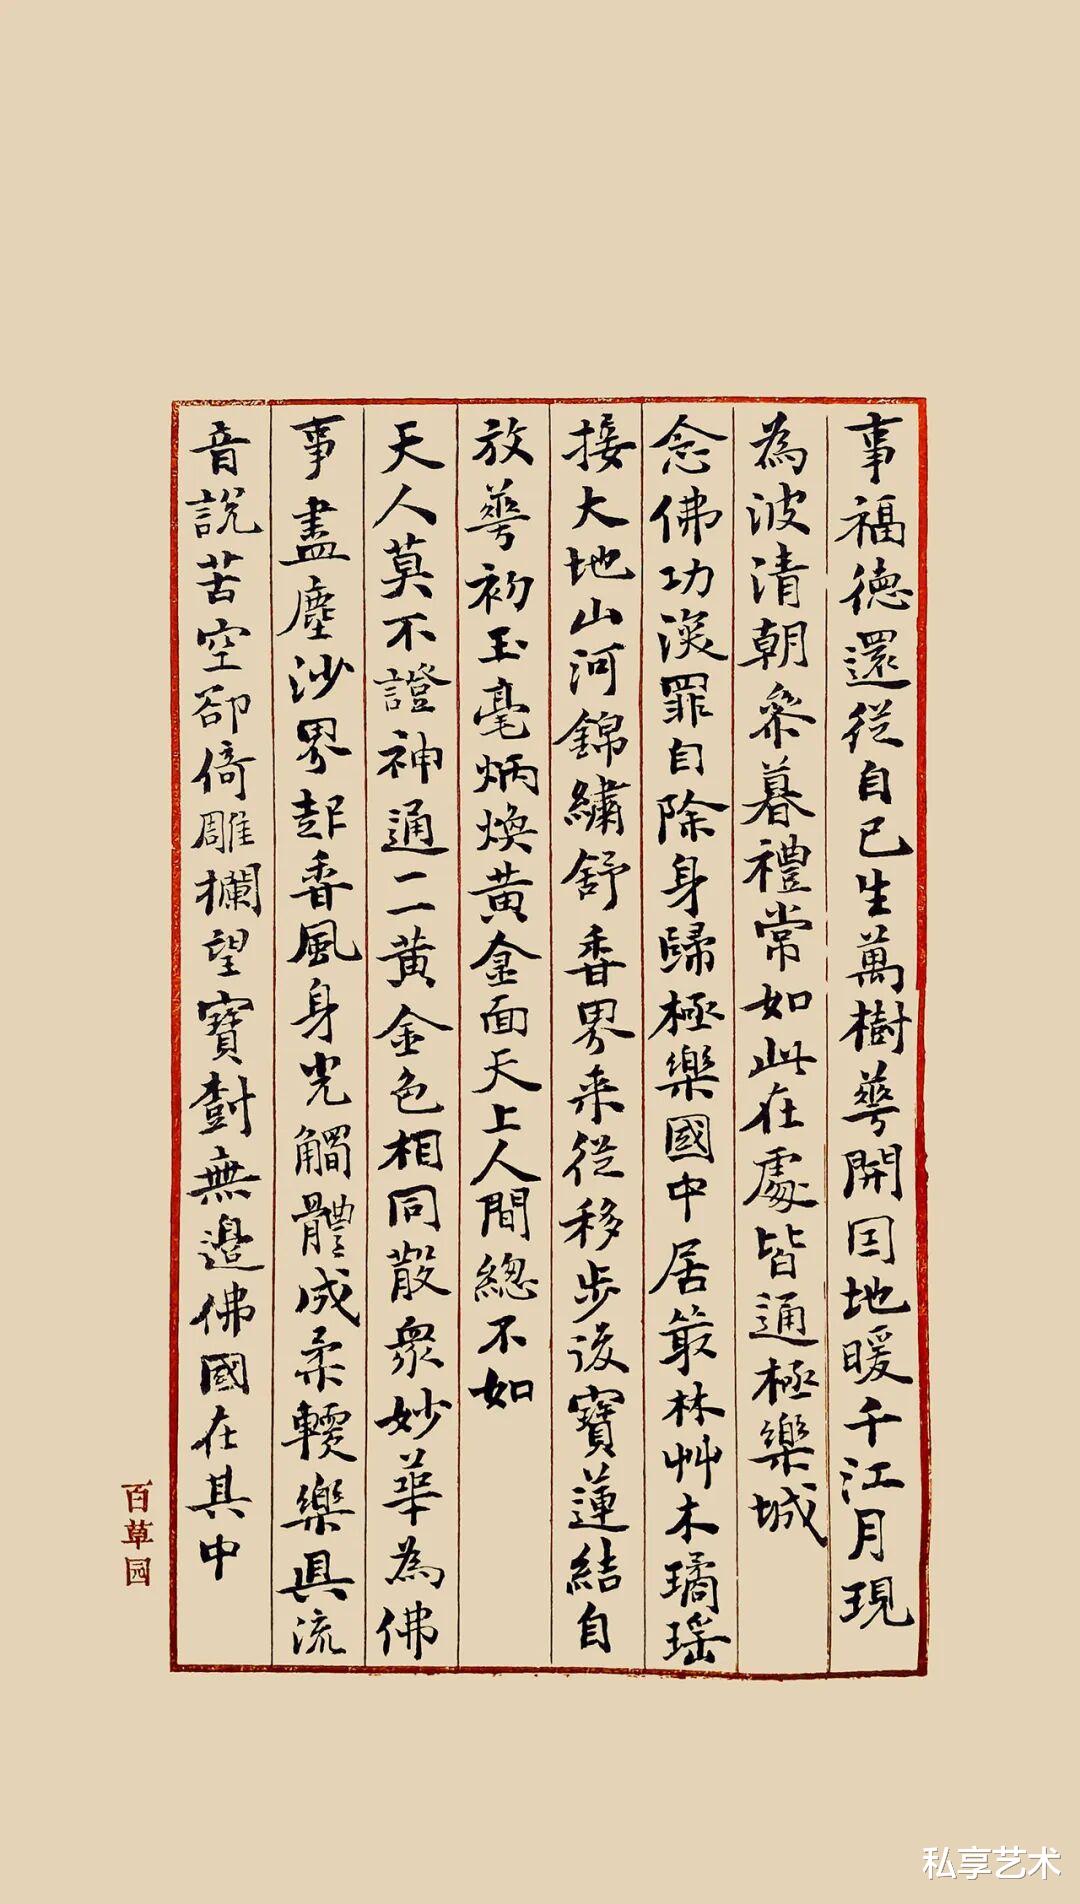 事福德還從自己生萬樹華開因地暖千江月現
為波清朝參暮禮常如此在處皆通極樂城
念佛功深罪自除身歸極樂國中居叢林艸木璚瑶
接大地山河錦繡舒香界来從移步後寶蓮結自
放華初玉毫炳煥黄金面天上人間總不如
天人莫不證神通二黄金色相同散衆妙華為佛
事盡塵沙界起香風身光觸體成柔輭樂具流
音説苦空卻倚雕欄望寶樹無邊佛國在其中
百草园
私享艺术